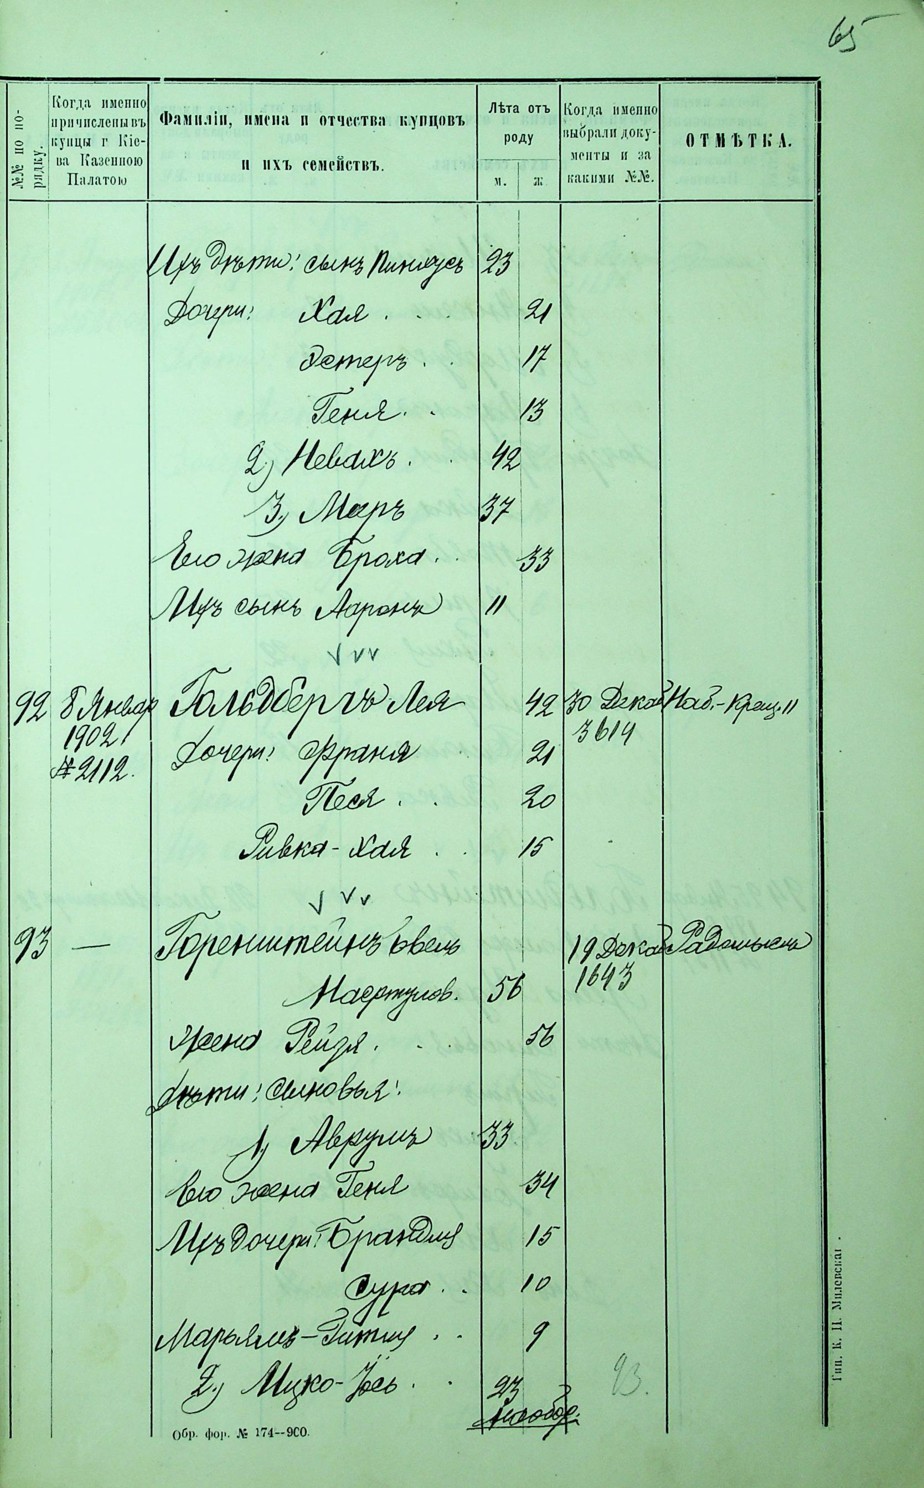 65
№№ по порядку.
Когда именно
причислены въ
купцы г. Кіе-
ва Казенною
Палатою
Фамиліи, имена и отчества купцовъ
и ихъ семействъ.
Лѣта отъ
роду
м. ж.
Когда именно
выбрали доку-
менты и за
какими №№.
ОТМѢТКА.
Ихъ дѣти: сынъ Пинхусъ 23
Дочери: Хая . . 21
Эстеръ . . 17
Геня . . 13
2) Невахъ . . 42
3) Меръ 37
Его жена Броха . . 33
Ихъ сынъ Ааронъ 11
92 8 Январ Гольдбергъ Лея 42 30 Декаб Наб.-Крещ. 11
1902 3614
№ 2112. Дочери: Франя 21
Песя . . 20
Ривка-Хая . 15
93 — Горенштейнъ Іовель 19 Декаб Радомысль
56 1643
Жена Рейзя . . . 56
Дѣти: Сыновья:
1) Аврумъ 33
Его жена Геня 34
Ихъ дочери: Брандля 15
Сура . . 10
Марьямъ-Гитля . . 9
2) Ицко-Іось . . 23
93.
Обр. фор. № 174—900.
Тип. К. Н. Милевскаг.